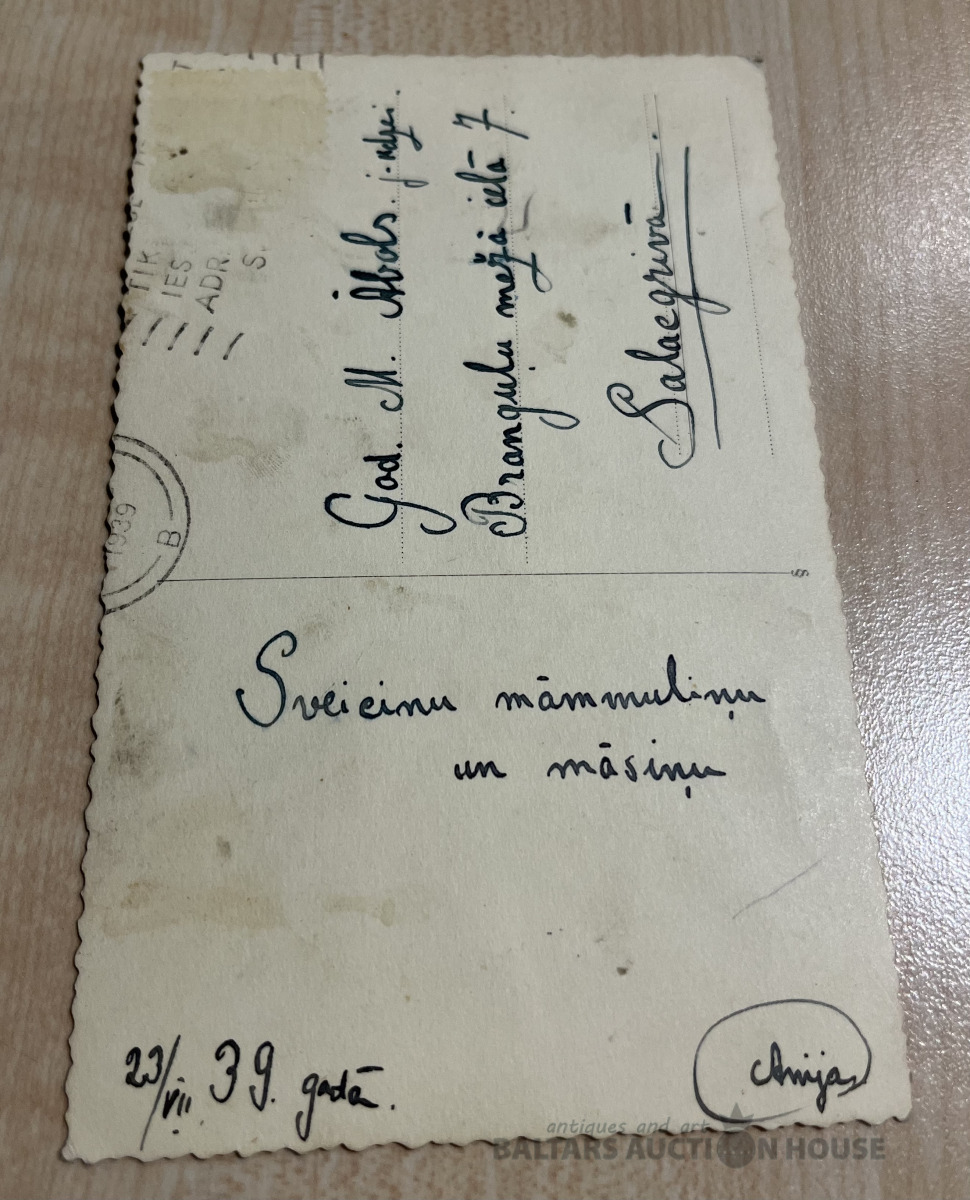 TIK
IES
ADR.
S.
1939
B
God. M. Ābols j-kdzei.
Branguļu mežā ielā 7.
Salacgrīvā.
Sveicinu māmmuliņu
un māsiņu
23/VII 39. gadā.
antiques and art
BALTARS AUCTION HOUSE